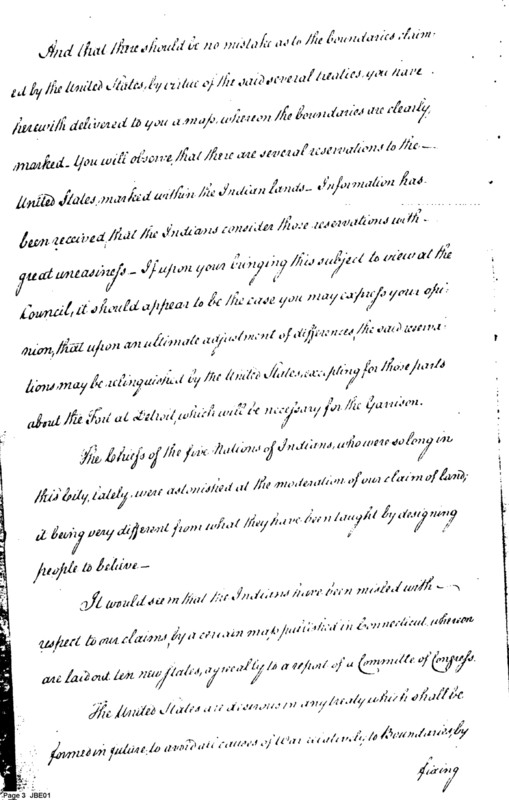 And that there should be no mistake as to the boundaries claim-
ed by the United States, by virtue of the said several treaties, you have
herewith delivered to you a map, whereon the boundaries are clearly,
marked_ You will observe, that there are several reservations to the_
United States, marked within the Indian lands_ Information has
been received, that the Indians consider those reservations with_
great uneasiness_ If upon your bringing this subject to view at the
Council, it should appear to be the case you may express your opi-
nion, that upon an ultimate adjustment of differences, the said reserva-
tions may be relinquished by the United States, excepting for those parts
about the Fort at Detroit, which will be necessary for the Garrison.
The Chiefs of the five Nations of Indians, who were so long in
this City, lately, were astonished at the moderation of our claim of land;
it being very different from what they have been taught by designing
people to believe_
It would seem that the Indians have been misled with_
respect to our claims, by a certain map published in Connecticut, whereon
are laid out ten new States, agreeably to a report of a Committe of Congress.
The United States are desirous in any treaty which shall be
formed in future, to avoid all causes of War relatively to Boundaries, by
fixing
Page 3 JBE01